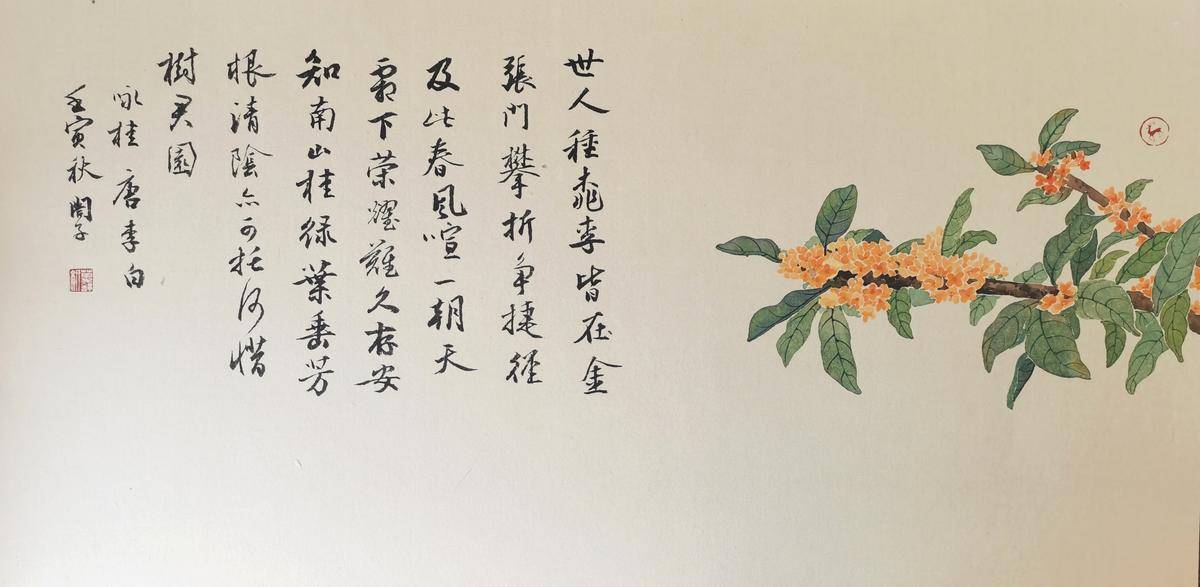 世人種桃李皆在金
張門攀折争捷徑
及此春風喧一朝天
霜下荣燿難久存安
知南山桂绿葉垂芳
根清陰亦可托何惜
樹君園
咏桂 唐 李白
壬寅秋